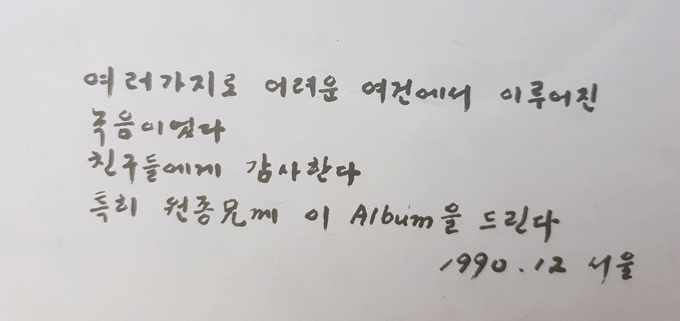 여러가지로 어려운 여건에서 이루어진
녹음이었다
친구들에게 감사한다
특히 원종兄께 이 Album을 드린다
1990.12 서울